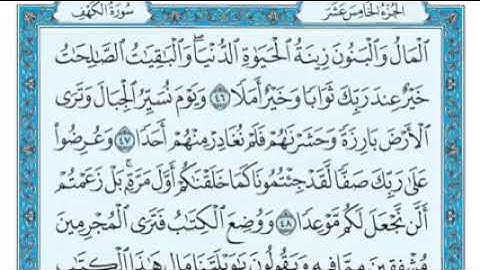 الجزء الخامس عشر
سورة الكهف
ٱلْمَالُ وَٱلْبَنُونَ زِينَةُ ٱلْحَيَوٰةِ ٱلدُّنْيَا ۖ وَٱلْبَٰقِيَٰتُ ٱلصَّٰلِحَٰتُ
خَيْرٌ عِندَ رَبِّكَ ثَوَابًا وَخَيْرٌ أَمَلًا ٤٦ وَيَوْمَ نُسَيِّرُ ٱلْجِبَالَ وَتَرَى
ٱلْأَرْضَ بَارِزَةً وَحَشَرْنَٰهُمْ فَلَمْ نُغَادِرْ مِنْهُمْ أَحَدًا ٤٧ وَعُرِضُوا۟
عَلَىٰ رَبِّكَ صَفًّا لَّقَدْ جِئْتُمُونَا كَمَا خَلَقْنَٰكُمْ أَوَّلَ مَرَّةٍۭ ۚ بَلْ زَعَمْتُمْ
أَلَّن نَّجْعَلَ لَكُم مَّوْعِدًا ٤٨ وَوُضِعَ ٱلْكِتَٰبُ فَتَرَى ٱلْمُجْرِمِينَ
مُشْفِقِينَ مِمَّا فِيهِ وَيَقُولُونَ يَٰوَيْلَتَنَا مَالِ هَٰذَا ٱلْكِتَٰبِ